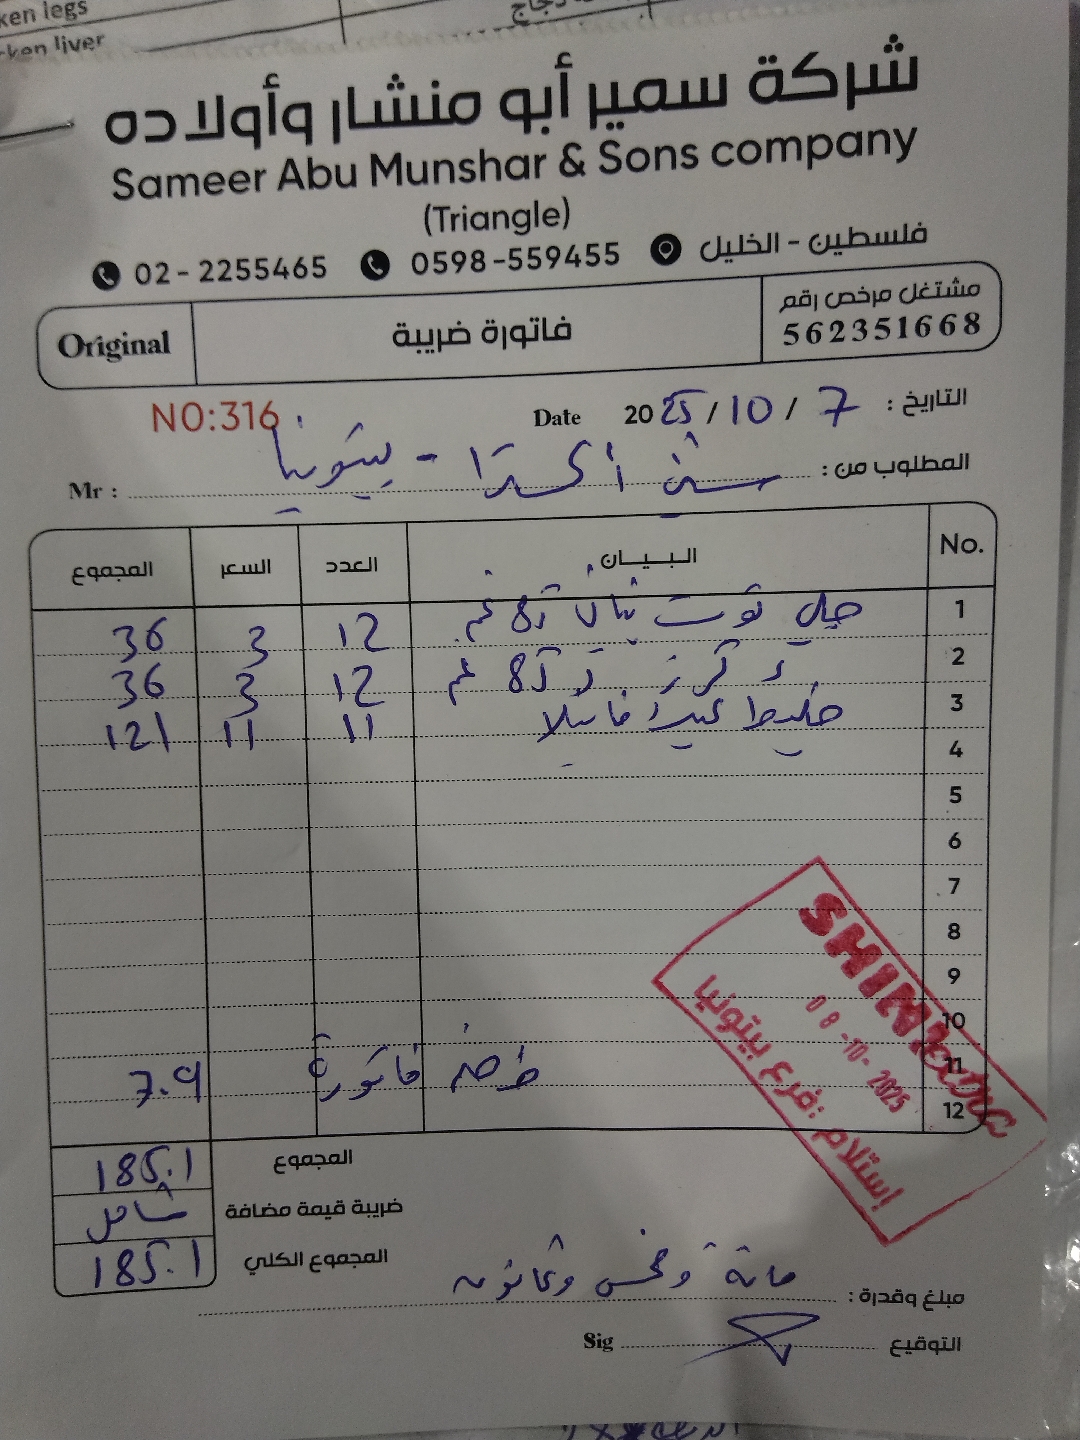 ken legs
ken liver
شركة سمير أبو منشار وأولاده
Sameer Abu Munshar & Sons company
(Triangle)
02 - 2255465 0598-559455 فلسطين - الخليل
مشتغل مرخص رقم
562351668
فاتورة ضريبة
Original
NO:316
التاريخ : 7 / 10 / 2025 Date
المطلوب من : - بيتونيا Mr :
No. البيان العدد السعر المجموع
1 جل توت غم 12 3 36
2 كرز غم 12 3 36
3 خليط 11 11 121
4
5
6
7
8
9
10
11 خصم فاتورة 7.9
12
SHINI extra
08-10-2025
إستلام : فرع بيتونيا
المجموع 185.1
ضريبة قيمة مضافة شامل
المجموع الكلي 185.1
مبلغ وقدرة : مائة وخمس وثمانون
التوقيع Sig